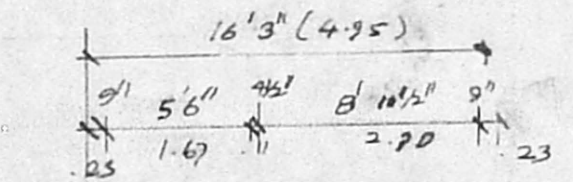 16' 3" (4.95)
9" 5'6" 4½" 8' 10½" 9"
.23 1.67 .11 2.70 .23